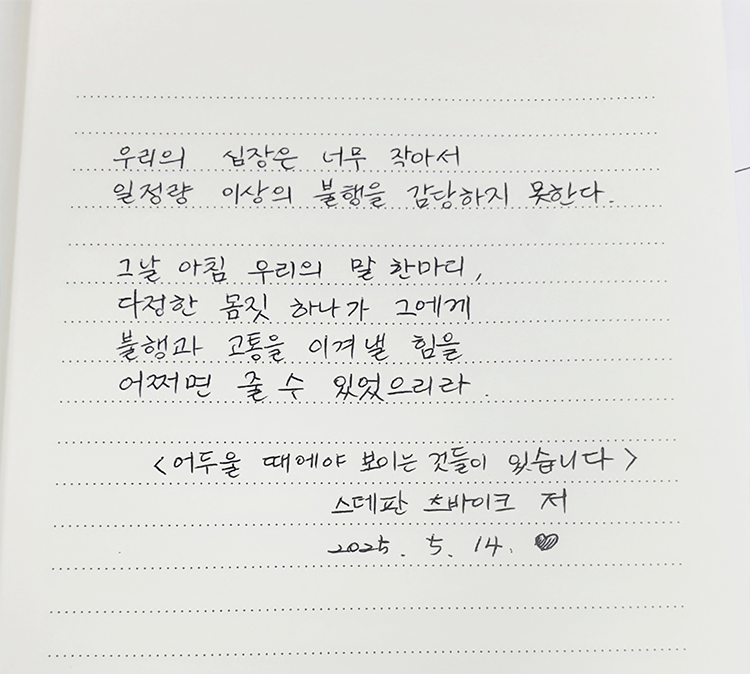 우리의 심장은 너무 작아서
일정량 이상의 불행을 감당하지 못한다.
그날 아침 우리의 말 한마디,
다정한 몸짓 하나가 그에게
불행과 고통을 이겨낼 힘을
어쩌면 줄 수 있었으리라.
<어두울 때에야 보이는 것들이 있습니다>
스테판 츠바이크 저
2025. 5. 14. ♥